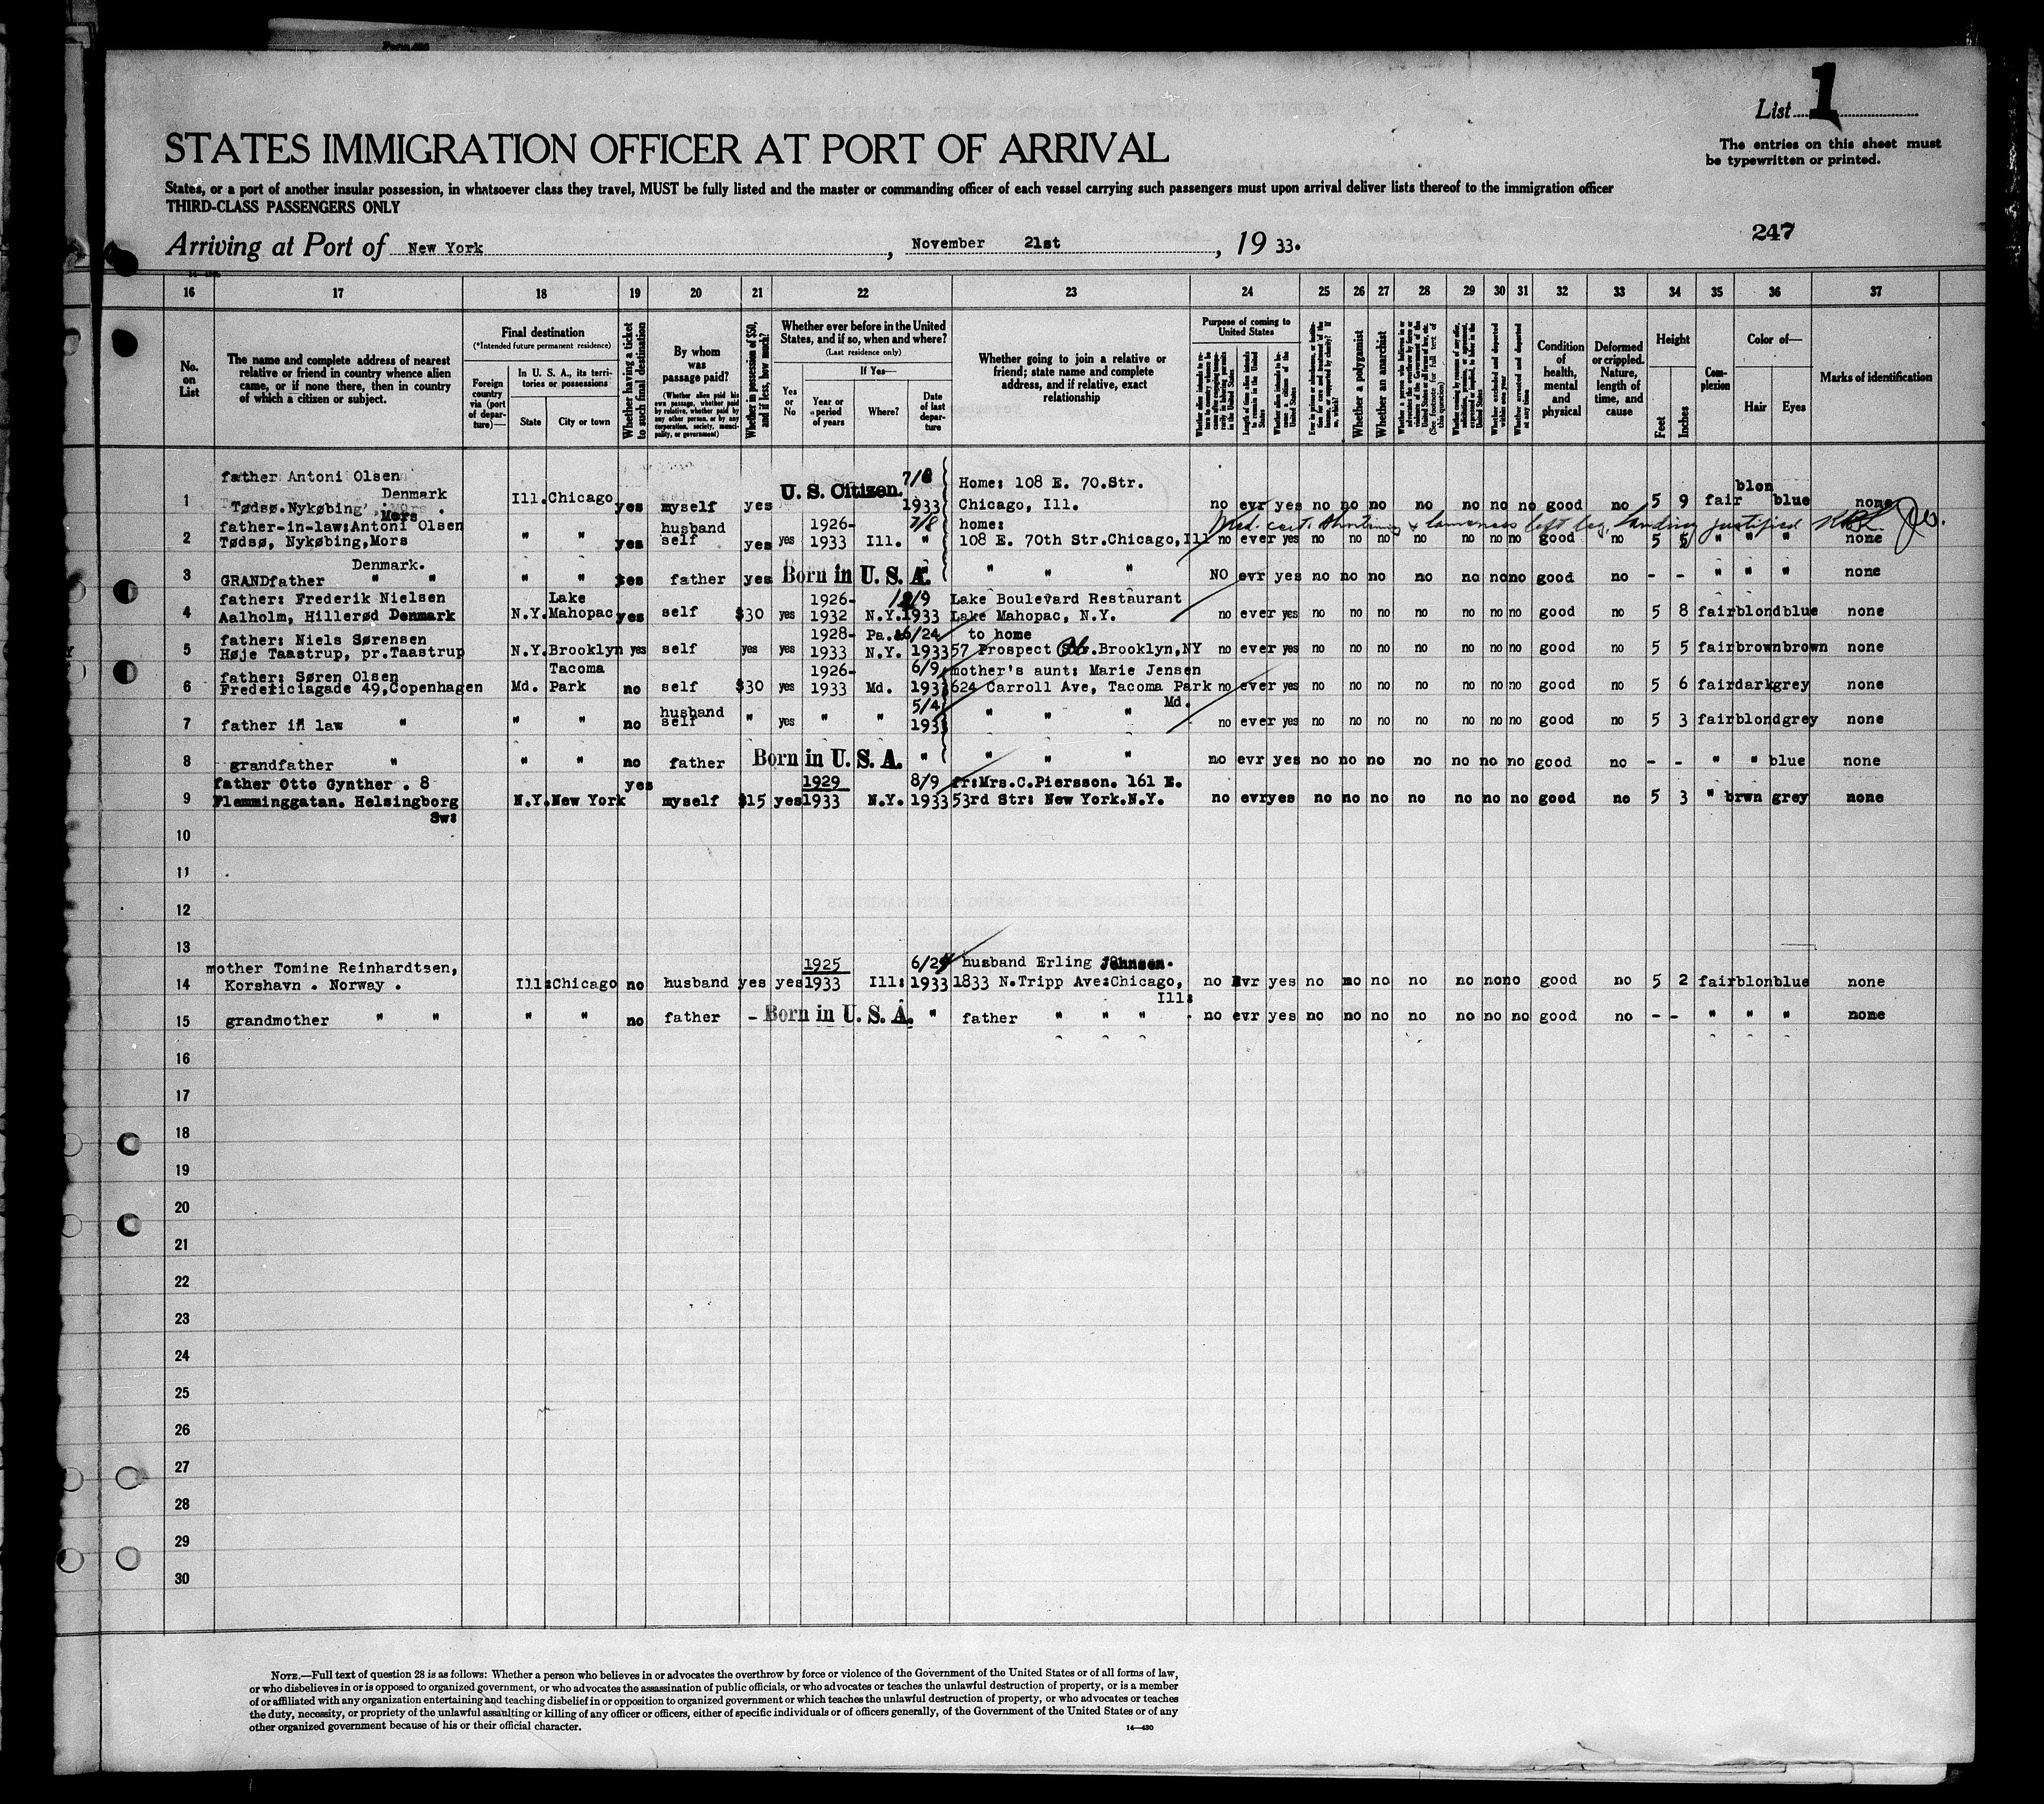 List 1
The entries on this sheet must
be typewritten or printed.
STATES IMMIGRATION OFFICER AT PORT OF ARRIVAL
States, or a port of another insular possession, in whatsoever class they travel, MUST be fully listed and the master or commanding officer of each vessel carrying such passengers must upon arrival deliver lists thereof to the immigration officer
THIRD-CLASS PASSENGERS ONLY
247
Arriving at Port of New York, November 21st, 19 33.
16 17 18 19 20 21 22 23 24 25 26 27 28 29 30 31 32 33 34 35 36 37
No. on List
The name and complete address of nearest relative or friend in country whence alien came, or if none there, then in country of which a citizen or subject.
Final destination
(*Intended future permanent residence)
Foreign country via (port of departure)—
In U. S. A., its territories or possessions
State City or town
Whether having a ticket to such final destination
By whom was passage paid?
(Whether alien paid his own passage, whether paid by relative, whether paid by any other person, or by any corporation, society, municipality, or government)
Whether in possession of $50, and if less, how much?
Whether ever before in the United States, and if so, when and where?
(Last residence only)
Yes or No
If Yes—
Year or period of years
Where?
Date of last departure
Whether going to join a relative or friend; state name and complete address, and if relative, exact relationship
Purpose of coming to United States
Length of time alien intends to remain in the United States
Whether alien intends to become a citizen of the United States
Whether a polygamist
Whether an anarchist
Whether excluded and deported within one year
Whether arrested and deported at any time
Condition of health, mental and physical
Deformed or crippled. Nature, length of time, and cause
Height
Feet Inches
Complexion
Color of—
Hair Eyes
Marks of identification
1 father Antoni Olsen Tødsø.Nykøbing Mors Denmark Ill. Chicago yes myself yes U. S. Citizen. 7/8 1933 Home: 108 E. 70.Str. Chicago, Ill. no evr yes no no no no no no no good no 5 9 fair blon blue none
Med. cert. lameness left leg, landing justified
2 father-in-law:Antoni Olsen Tødsø, Nykøbing,Mors Denmark. " " yes husband self yes yes 1926-1933 Ill. 7/8 " home: 108 E. 70th Str.Chicago,Ill no ever yes no no no no no no no good no 5 5 " " " none
3 GRANDfather " " " " yes father yes Born in U. S. A. " " " NO evr yes no no no no no no no good no - - " " " none
4 father: Frederik Nielsen Aalholm, Hillerød Denmark N.Y. Lake Mahopac yes self $30 yes 1926-1932 N.Y. 1933 Lake Boulevard Restaurant Lake Mahopac, N.Y. no ever yes no no no no no no no good no 5 8 fair blond blue none
5 father: Niels Sørensen Høje Taastrup, pr.Taastrup N.Y. Brooklyn yes self yes yes 1928-1933 Pa. N.Y. 6/24 1933 to home 57 Prospect Brooklyn,NY no ever yes no no no no no no no good no 5 5 fair brown brown none
6 father: Søren Olsen Fredericiagade 49,Copenhagen Md. Tacoma Park no self $30 yes 1926-1933 Md. 6/9 1933 mother's aunt: Marie Jensen 624 Carroll Ave, Tacoma Park Md. no ever yes no no no no no no no good no 5 6 fair dark grey none
7 father in law " " " no husband self " yes " " 5/4 1933 " " " no ever yes no no no no no no no good no 5 3 fair blond grey none
8 grandfather " " " no father Born in U. S. A. " " " " no evr yes no no no no no no no good no - - " " blue none
9 father Otto Gynther . 8 Flemminggatan. Helsingborg Sw: N.Y. New York yes myself $15 yes 1929 1933 N.Y. 8/9 1933 fr:Mrs.C.Piersson. 161 E. 53rd Str: New York.N.Y. no evr yes no no no no no no no good no 5 3 " brwn grey none
10
11
12
13
14 mother Tomine Reinhardtsen, Korshavn . Norway . Ill: Chicago no husband yes yes 1925 1933 Ill: 6/24 1933 husband Erling Johnsen. 1833 N.Tripp Ave:Chicago, Ill: no evr yes no no no no no no no good no 5 2 fair blon blue none
15 grandmother " " " " no father - Born in U. S. A. " father " " " no evr yes no no no no no no no good no - - " " " none
16
17
18
19
20
21
22
23
24
25
26
27
28
29
30
NOTE.—Full text of question 28 is as follows: Whether a person who believes in or advocates the overthrow by force or violence of the Government of the United States or of all forms of law,
or who disbelieves in or is opposed to organized government, or who advocates the assassination of public officials, or who advocates or teaches the unlawful destruction of property, or is a member
of or affiliated with any organization entertaining and teaching disbelief in or opposition to organized government or which teaches the unlawful destruction of property, or who advocates or teaches
the duty, necessity, or propriety of the unlawful assaulting or killing of any officer or officers, either of specific individuals or of officers generally, of the Government of the United States or of any
other organized government because of his or their official character.
14—430